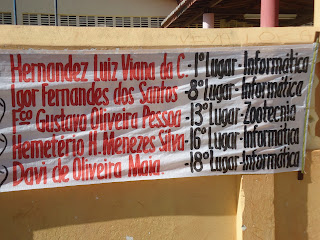 Hernandez Luiz Viana da C. - 1º Lugar - Informática
Igor Fernandes dos Santos - 8º Lugar - Informática
Fco Gustavo Oliveira Pessoa - 13º Lugar - Zootecnia
Hemetério H. Menezes Silva - 16º Lugar - Informática
Davi de Oliveira Maia - 18º Lugar - Informática